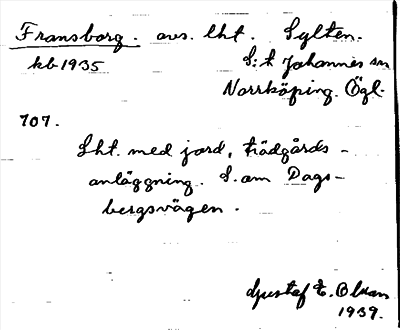 Fransborg. avs. lht. Sylten.
kb 1935 S:t Johannes sn
Norrköping. Ögl.
707.
Lht. med jord, trädgårds-
anläggning. S. om Dags-
bergsvägen.
Gustaf E. Olsson
1939.